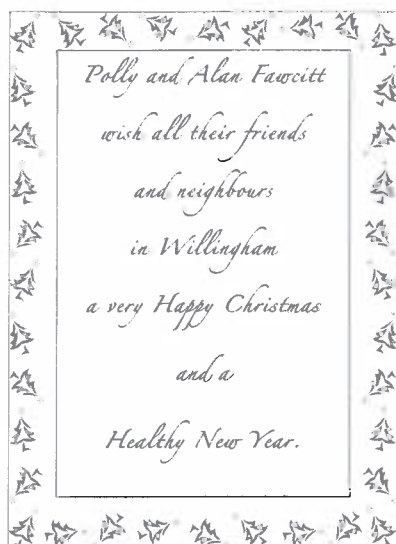 Polly and Alan Fawcitt
wish all their friends
and neighbours
in Willingham
a very Happy Christmas
and a
Healthy New Year.